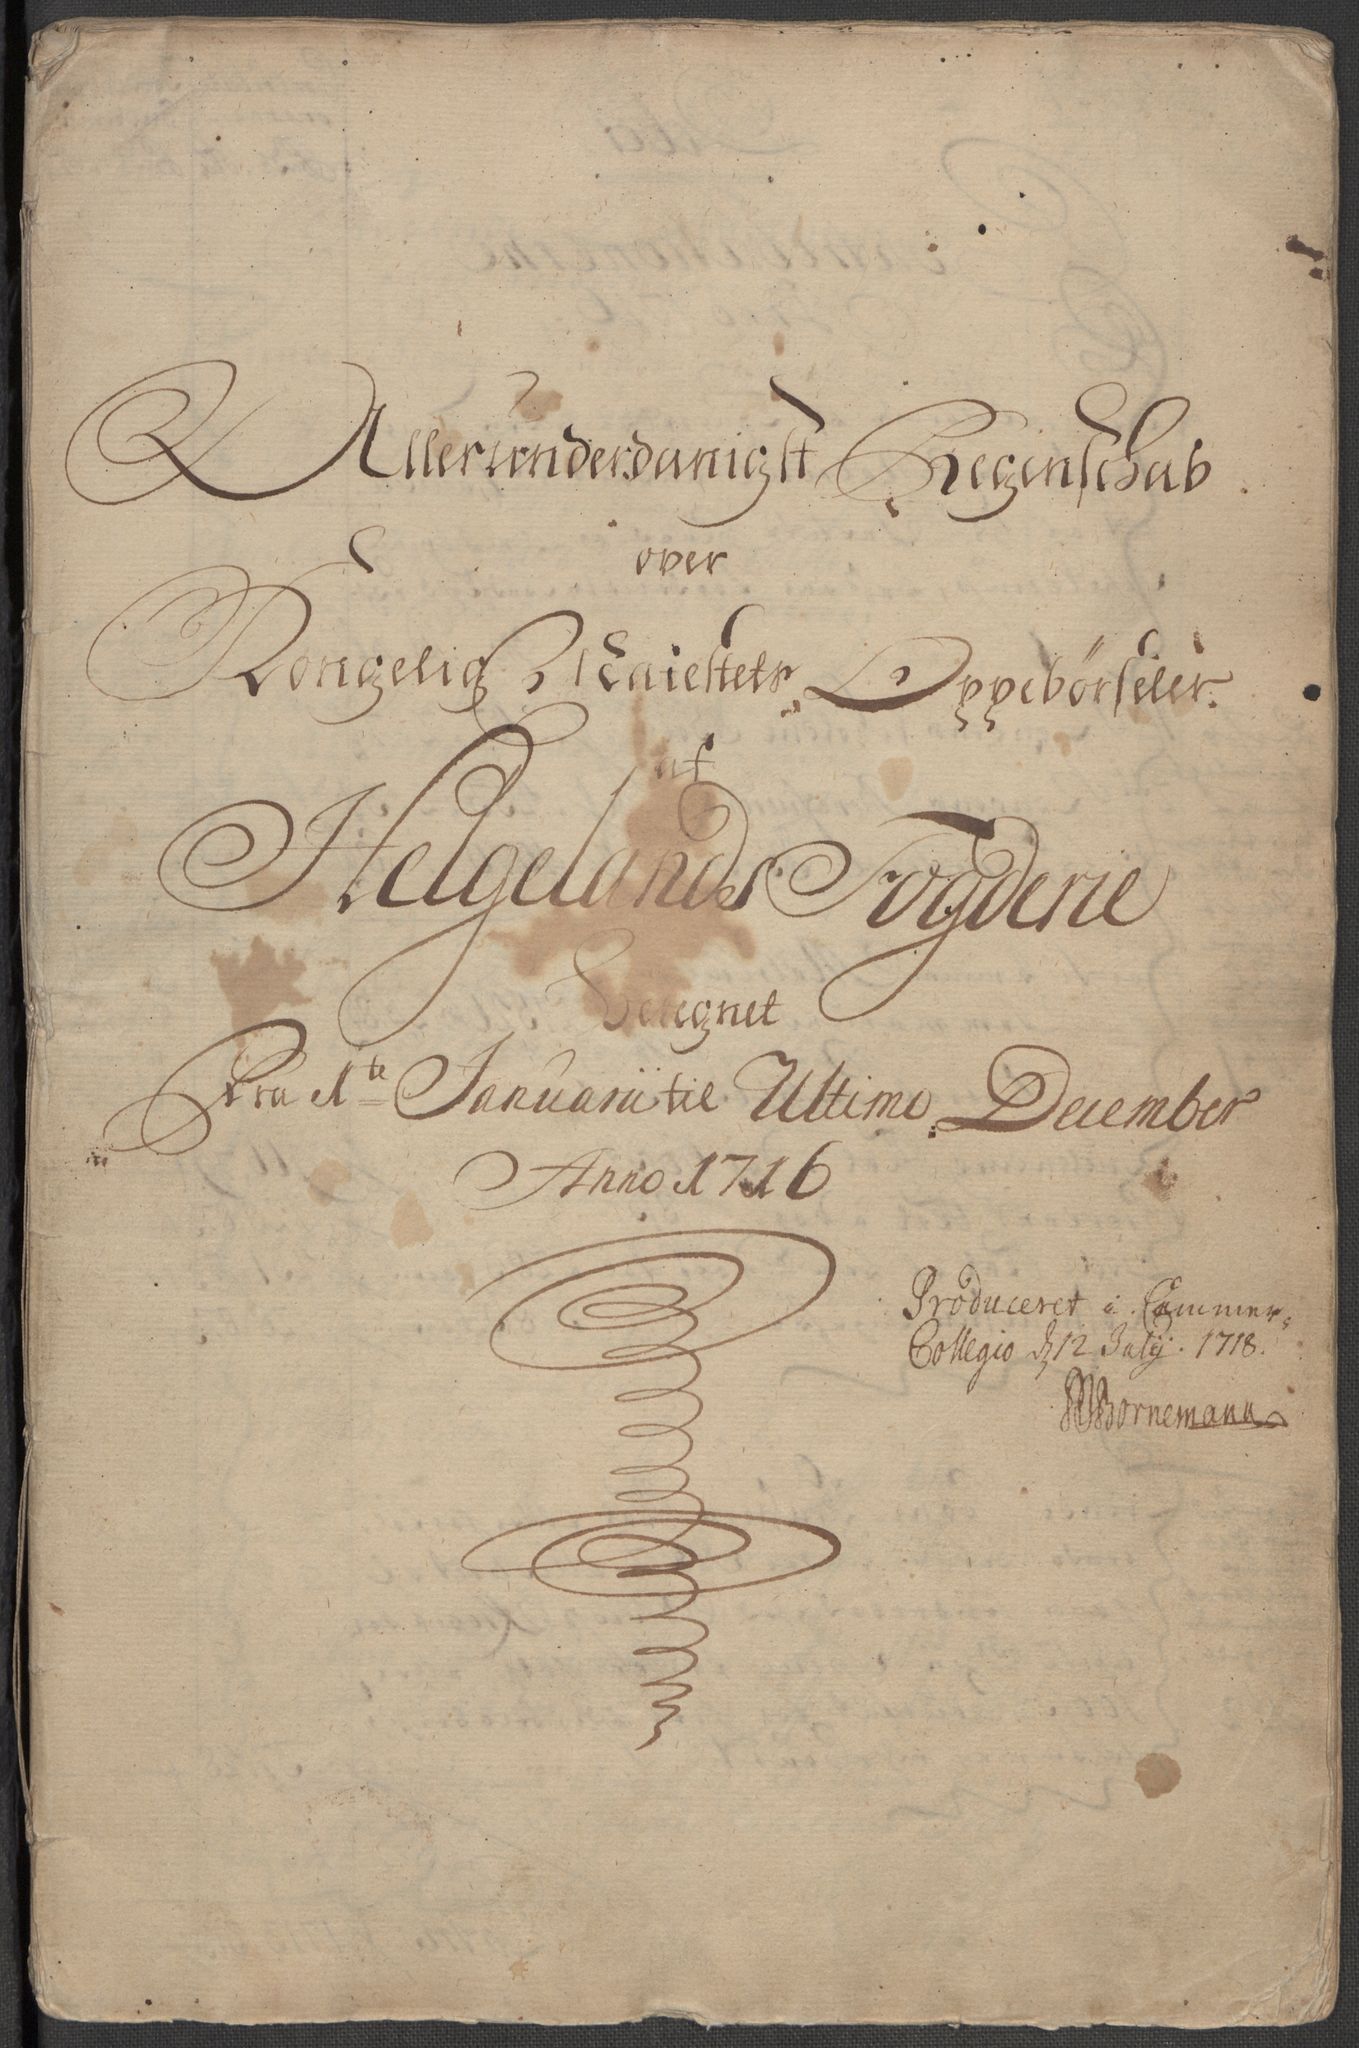 Allerunderdanigst Regenschab
over
Kongelig Maiestets Oppebörseler
af
Helgelands Fogderie
Beregnet
Fra 1te Januarii til Ultimo December
Anno 1716
Produceret i Cammer-
Collegio d. 12 Julij. 1718.
Bornemann